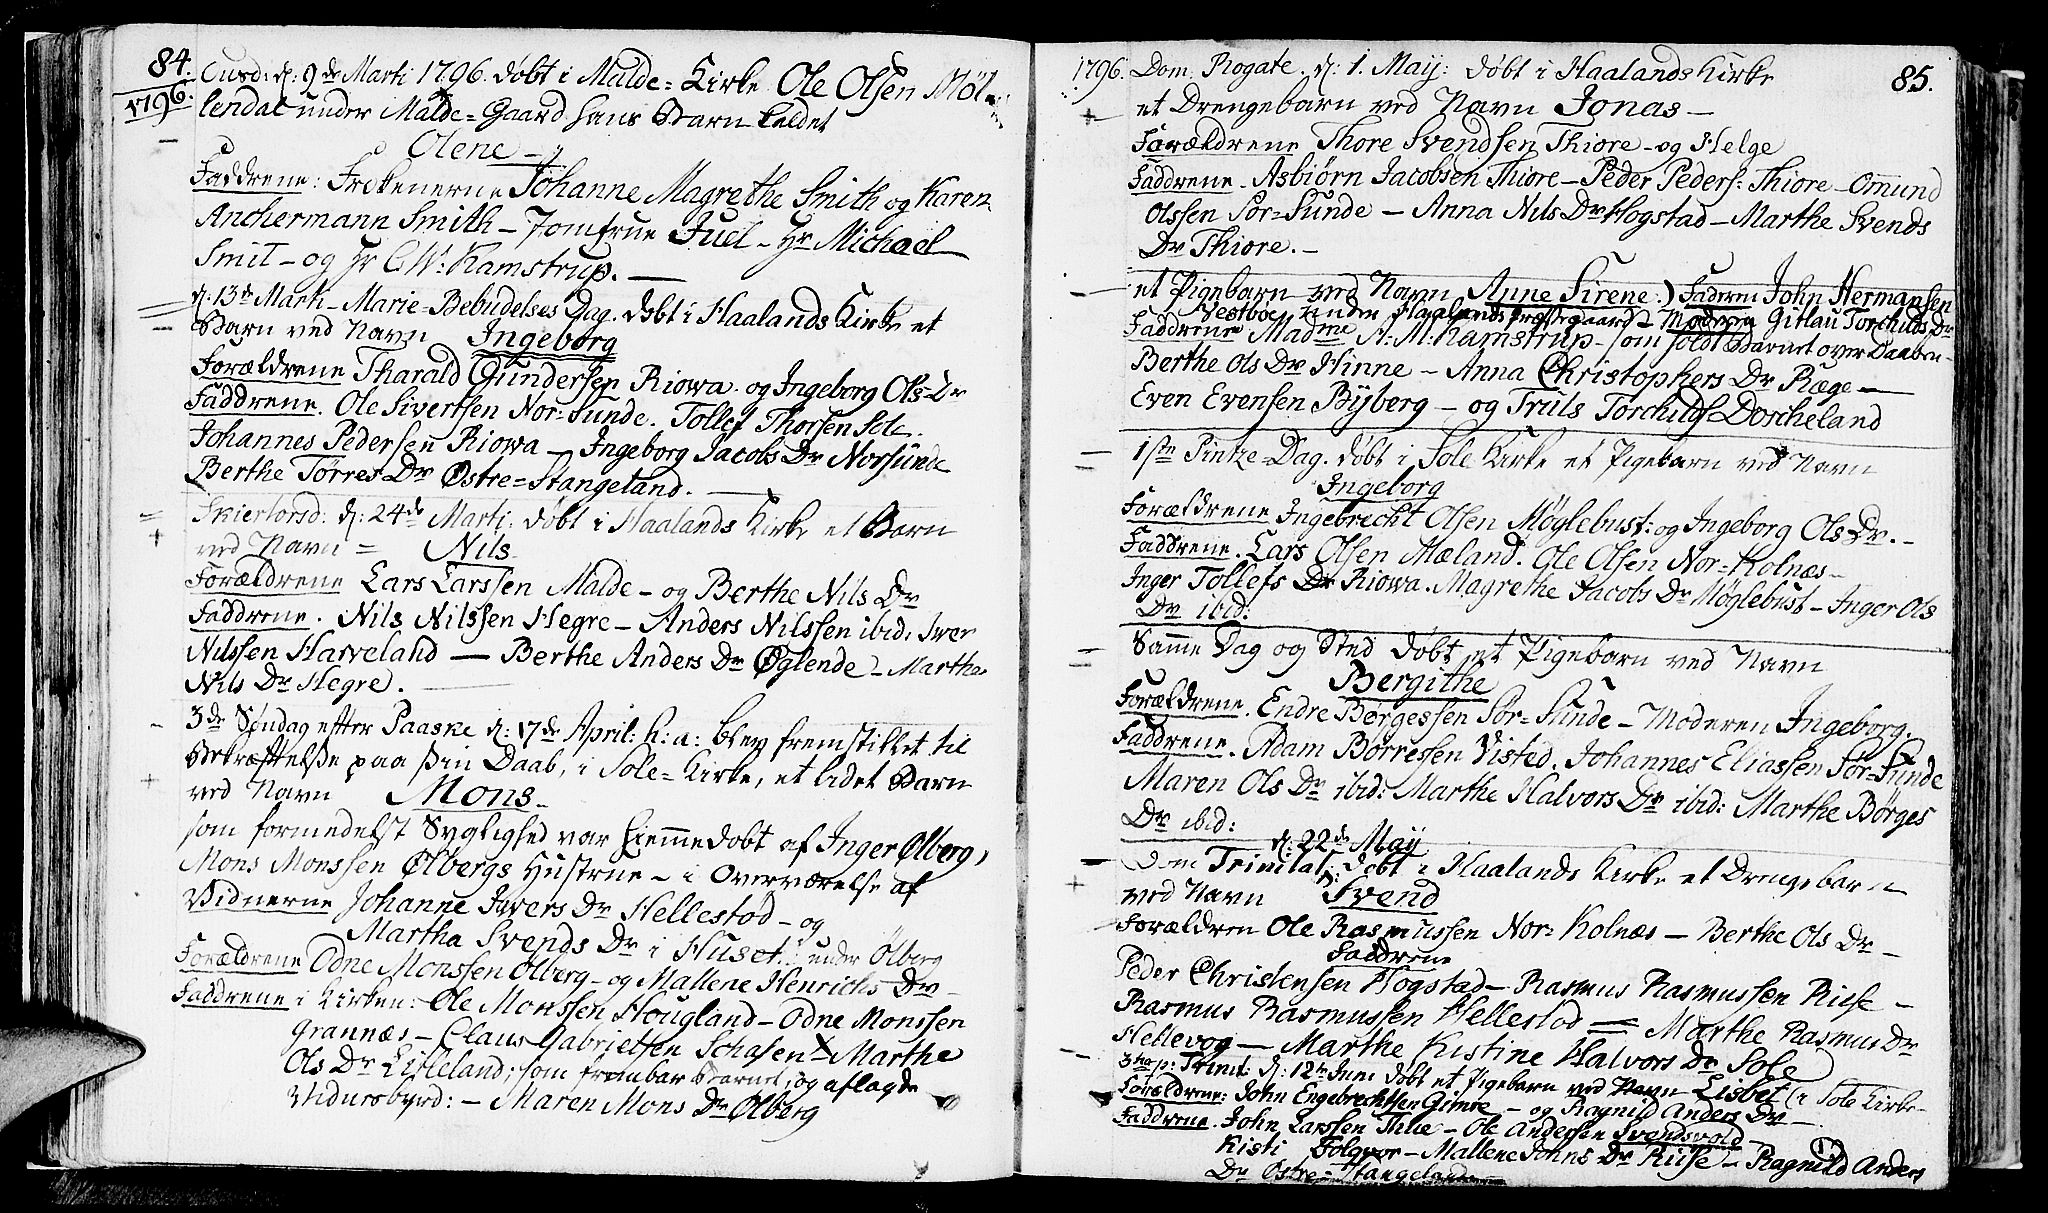 84.
1796.
Onsd: d: 9de Marti 1796. døbt i Malde=Kirke Ole Olsen Møl-
lendal under Malde=Gaard hans Barn kaldet
Olene -
Faddrene: Frøkenerne Johanne Magrethe Smith og Karen
Anchermann Smith - Jomfrue Juel - Hr Michael
Smit - og Hr C W: Kamstrup. -
d: 13de Marti - Marie-Bebudelses Dag. døbt i Haalands Kirke et
Barn ved Navn Ingeborg
Forældrene Tharald Gundersen Riowa. og Ingeborg Ols Dr
Faddrene. Ole Sivertsen Nor-Sunde. Tollef Thorsen Sole.
Johannes Pedersen Riowa - Ingeborg Jacobs Dr Norsunde
Berthe Tørres Dr Østre=Stangeland. -
Skiertorsd: d: 24de Marti: døbt i Haalands Kirke et Barn
ved Navn = Nils
Forældrene Lars Larssen Malde - og Berthe Nils Dr
Faddrene. Nils Nilssen Hegre - Anders Nilssen ibid. Iver
Nilssen Harveland - Berthe Anders Dr Øglende - Marthe
Nils Dr Hegre. -
3de Søndag efter Paaske d: 17de April: h: a: blev fremstillet til
Bekræftelse paa sin Daab, i Sole=Kirke, et lidet Barn
ved Navn Mons -
som formedelst Svaglighed var hiemmedøbt af Inger Ølberg,
Mons Monssen Ølbergs Hustrue - i Overværelse af
Vidnerne Johanne Ivers Dr Hellestød - og
Martha Svends Dr i Huset: under Ølberg
Forældrene Odne Monssen Ølberg - og Mallene Henrichs Dr
Faddrene i Kirken: Ole Monssen Hougland - Odne Monssen
Grannæs - Claus Gabrielsen Schasen Marthe
Ols Dr Lisleland; som frembar Barnet, og aflagde
Vidnesbyrd: - Maren Mons Dr Ølberg
1796. Dom. Rogate. d: 1. Maij: døbt i Haalands Kirke 85.
et Drengebarn ved Navn Jonas -
Forældrene Thore Svendsen Thiore - og Helge
Faddrene. Asbiørn Jacobsen Thiore - Peder Peders: Thiore - Omund
Olssen Sør=Sunde - Anna Nils Dr Hogstad - Marthe Svends
Dr Thiore. -
et Pigebarn ved Navn Anne Sirene:) Faderen John Hermansen
Vestbøe under Haalands Præstegaard - Moderen Gitlau Torchilds Dr
Faddrene Madme A: M: Kamstrup - som holdt Barnet over Daaben -
Berthe Ols Dr Hinne - Anna Christophers Dr Ræge -
Even Evensen Bÿberg - og Truls Torchilds Dorcheland
1ste Pintze-Dag. døbt i Sole Kirke et Pigebarn ved Navn
Ingeborg
Forældrene Ingebrecht Olsen Møglebust: og Ingeborg Ols Dr. -
Faddrene. Lars Olsen Mæland. Ole Olsen Nor=Kolnæs -
Inger Tollefs Dr Riowa. Magrethe Jacobs Dr Møglebust - Inger Ols
Dr ibid:
Samme Dag og Sted døbt et Pigebarn ved Navn
Bergithe
Forældrene. Endre Børgessen Sør=Sunde - Moderen Ingeborg.
Faddrene. Adam Børressen Visted. Johannes Eliassen Sør=Sunde
Maren Ols Dr ibid: Marthe Halvors Dr ibid: Marthe Børges
Dr ibid:
d: 22de Maÿ
Dom Trinitat: døbt i Haalands Kirke et Drengebarn
ved Navn Svend
Forældren Ole Rasmussen Nor=Kolnæs - Berthe Ols Dr -
Faddrene
Peder Christensen Hogstad - Rasmus Rasmussen Riise -
Rasmus Rasmussen Hellestød = Marthe Rasmus Dr
Hellevog - Marthe Kistine Halvors Dr Sole
3tia p: Trinit: d: 12te Juni døbt et Pigebarn ved Navn Lisbet (i Sole Kirke
Forældrene: John Engebrechtsen Gimre - og Ragnild Anders Dr -
Faddrene. John Larssen Thue - Ole Andersen Svendsvold -
Kisti Folqvor - Mallene Johns Dr Riise - Ragnild Anders
Dr Østre=Stangeland